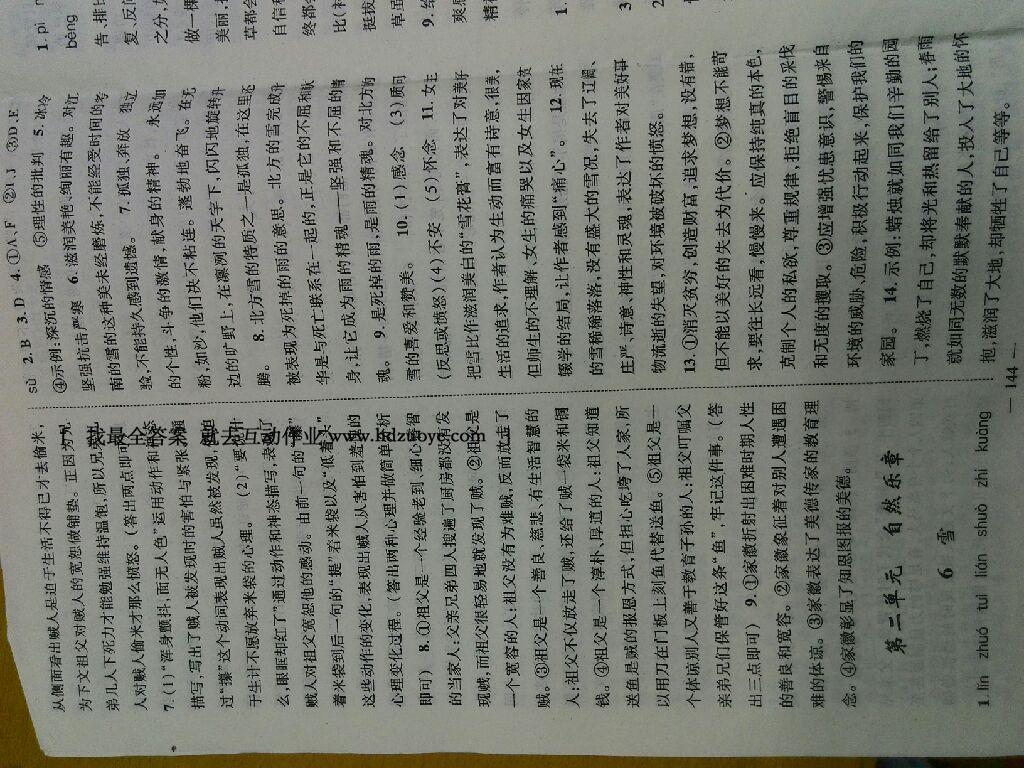 从侧面看出贼人是迫于生活不得已才去偷米,
为下文祖父对贼人的宽恕做铺垫。正因为兄
弟几人下死力才能勉强维持温饱,所以兄弟
人对贼人偷米才那么愤怒。(答出两点即可)
7.(1)“浑身颤抖,面无人色”运用动作和神态
描写,写出了贼人被发现时的害怕与紧张,
过“攥”这个动词表现出贼人虽然被发现,但
于生计不愿放弃米袋的心理。 (2)“要
么,眼眶却红了”通过动作和神态描写,表
贼人对祖父宽恕他的感动。由前一句的“攥”
着米袋到后一句的“提”着米袋以及“低着头”
这些动作的变化,表现出贼人从害怕到羞愧的
心理变化过程。(答出两种心理并做简单分析
即可) 8.①祖父是一个经验老到、细心、睿智
的当家人;父亲兄弟四人搜遍了厨房都没有发
现贼,而祖父很轻易地就发现了贼。②祖父是
一个宽容的人;祖父没有为难贼,反而放走了
贼。③祖父是一个善良、慈悲、有生活智慧的
人;祖父不仅放走了贼,还给了贼一袋米和铜
钱。④祖父是一个淳朴、厚道的人;祖父知道
送鱼是贼的报恩方式,但担心吃垮了人家,所
以用刀在门板上刻鱼代替送鱼。⑤祖父是一
个体谅别人又善于教育子孙的人;祖父叮嘱父
亲弟兄们保管好这条“鱼”,牢记这件事。(答
出三点即可) 9.①家徽折射出困难时期人性
的善良和宽容。②家徽象征着对别人遭遇困
难的体谅。③家徽表达了美德传家的教育理
念。④家徽彰显了知恩图报的美德。
第二单元 自然乐章
6 雪
1. lìn zhuó tuǐ lián shuò zhì kuàng
sù 2. B 3. D 4. ①A、F ②I、J ③D、E
④示例:深沉的情感 ⑤理性的批判 5. 冰冷
坚强抗击严寒 6. 滋润美艳、绚丽有趣。对江
南的雪的这种美未经磨炼,不能经受时间的考
验,不能持久感到遗憾。 7. 孤独、奔放 独立
的个性,斗争的激情,献身的精神。 永远如
粉,如沙,他们决不粘连。蓬勃地奋飞。在无
边的旷野上,在凛冽的天宇下,闪闪地旋转升
腾。 8. 北方雪的特质之一是孤独,在这里还
被表现为死掉的雨的意思。北方的雪完成升
华是与死亡联系在一起的,正是它的不屈和
身,让它成为雨的精魂——坚强和不屈的精
魂。 9. 是死掉的雨,是雨的精魂。对北方的
雪的喜爱和赞美。 10.(1)感念 (3)质问
(反思或愤怒)(4)不安 (5)怀念 11. 女生
把雪比作滋润美白的“雪花膏”,表达了对美好
生活的追求,作者认为生动而富有诗意,很美,
但师生的不理解,女生的痛哭以及女生因家贫
辍学的结局,让作者感到“痛心”。 12. 现在
的雪稀稀落落,没有盛大的雪况,失去了辽阔、
庄严、诗意、神性和灵魂,表达了作者对美好事
物流逝的失望,对环境被破坏的愤怒。
13. ①消灭贫穷,创造财富,追求梦想,没有错,
但不能以美好的失去为代价。②梦想不能苛
求,要往长远看,慢慢来。应保持纯真的本色,
克制个人的私欲,尊重规律,拒绝盲目的采伐
和无度的攫取。③应增强忧患意识,警惕来自
环境的威胁、危险,积极行动起来,保护我们的
家园。 14. 示例:蜡烛就如同我们辛勤的园
丁,燃烧了自己,却将光和热留给了别人;春雨
就如同无数的默默奉献的人,投入了大地的怀
抱,滋润了大地,却牺牲了自己等等。
— 144 —
1. pī
bèng
告,排比
复、反问
之分,
做一棵
美丽,
草都会
自信
终都会
挺拔
草虽
9.
爽
精
1.
2
3
找最全答案,就去互动作业 www.hdzuoye.com